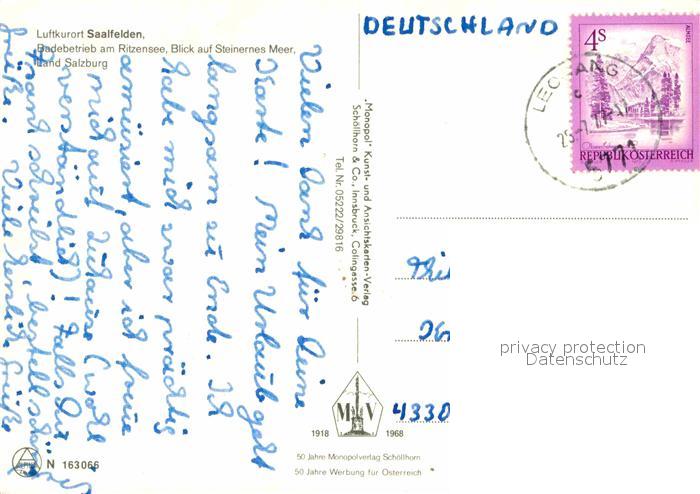 Luftkurort Saalfelden,
Badebetrieb am Ritzensee, Blick auf Steinernes Meer,
Land Salzburg
DEUTSCHLAND
4S
ALMSEE
REPUBLIK ÖSTERREICH
LEOGANG
c
25-7.77-17
5771
Vielen Dank für Deine
Karte! Mein Urlaub geht
langsam zu Ende. Ich
habe mich zwar prächtig
amüsiert, aber ich freue
mich auf Zuhause (wohl
verständlich)! Falls Du
Frank schreibst, bestell schöne
Grüße. Viele herzliche Grüße
„Monopol" Kunst- und Ansichtskarten-Verlag
Schöllhorn & Co., Innsbruck, Colingasse 6
Tel. Nr. 05222/29816
4330
privacy protection
Datenschutz
M V
1918 1968
50 Jahre Monopolverlag Schöllhorn
50 Jahre Werbung für Österreich
N 163066